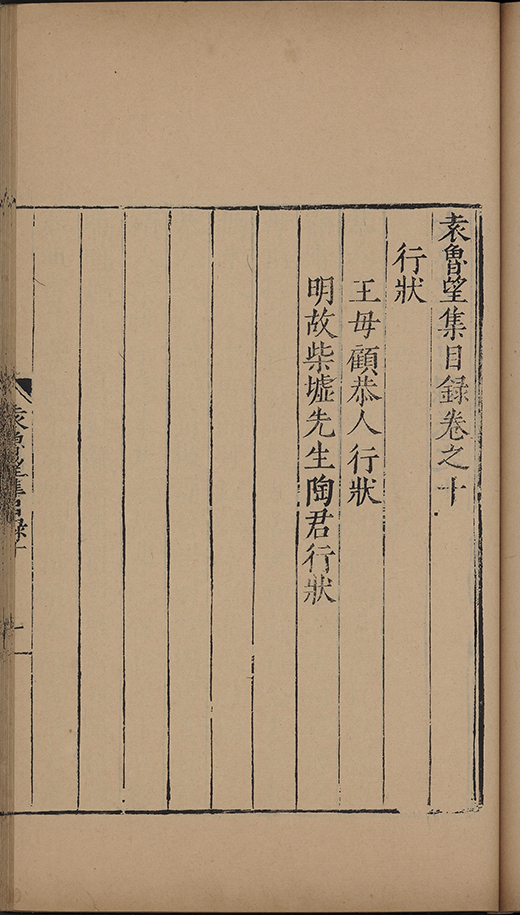 袁魯望集目録卷之十
行狀
王母顧恭人行狀
明故柴墟先生陶君行狀
袁魯望集目録十
一